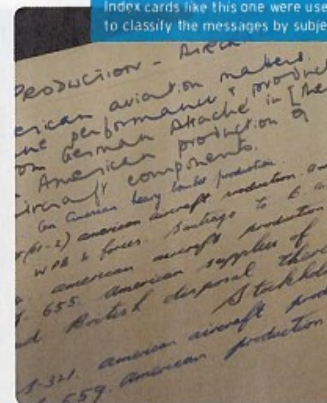 Index cards like this one were use
to classify the messages by subje
PRODUCTION - AIRCRA
erican aviation makers.
performance & product
om German Attache in [the
American production of
ircraft components.
on American heavy bomber production.
american aircraft production
W.P.B. & forces. Santiago to
american aircraft production
655. American supplies of
British disposal there
Stockhol
S-321. american aircraft prod
559. American production